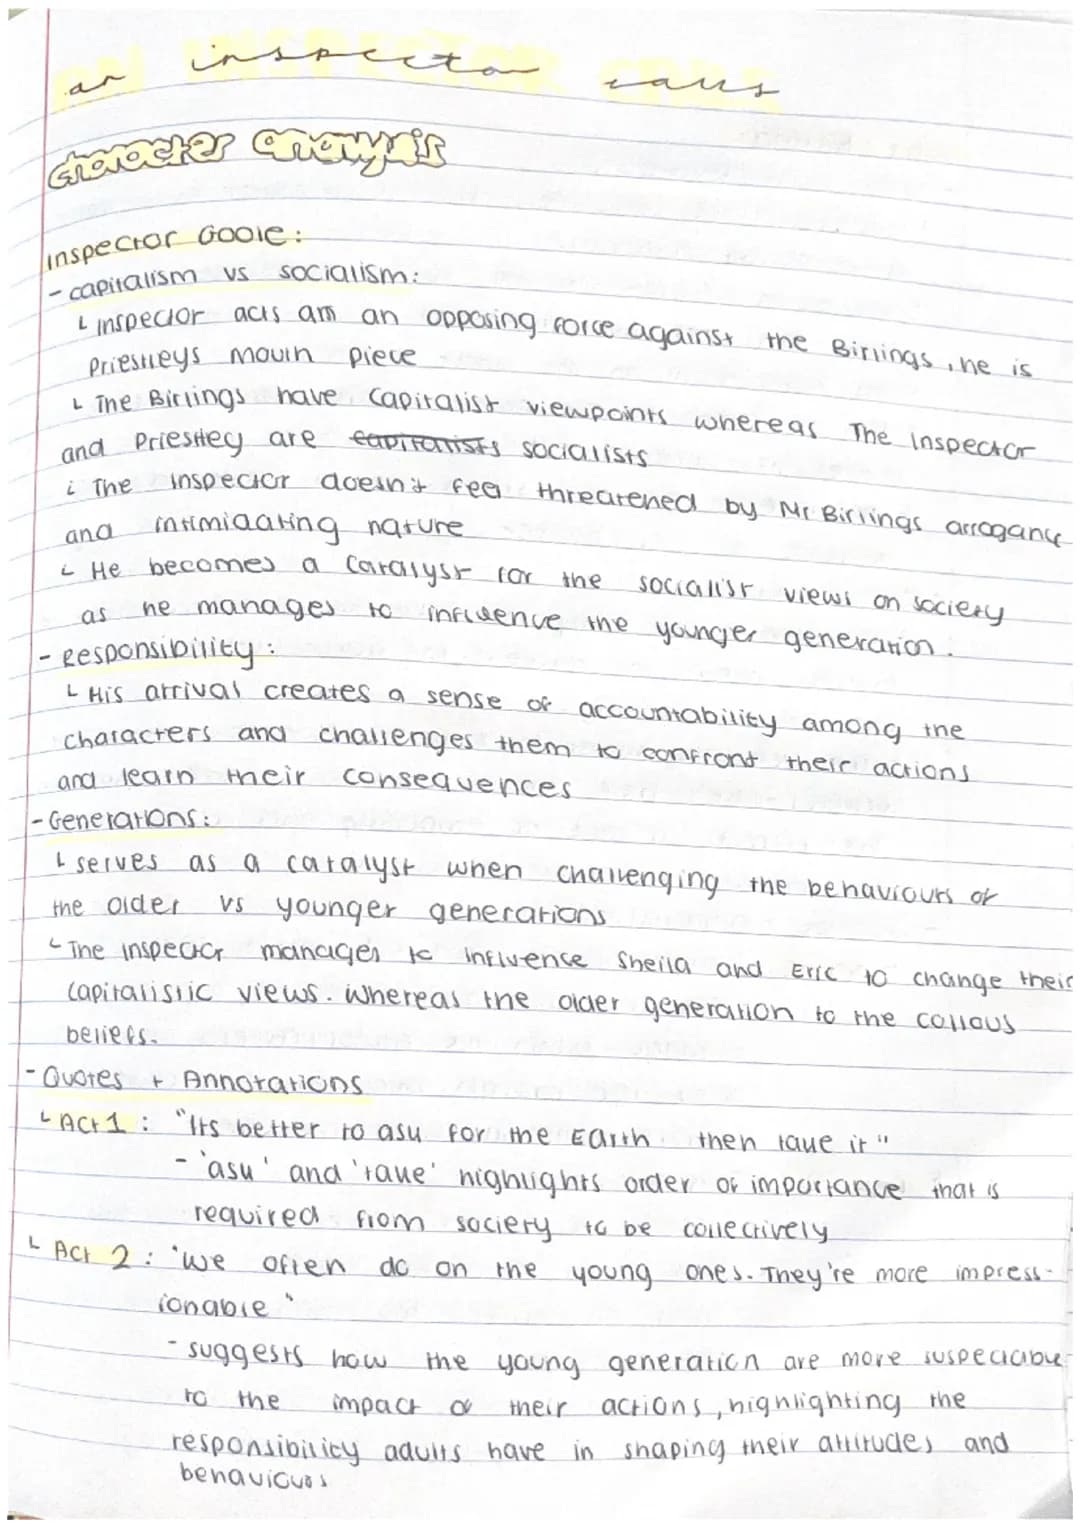 an inspector calls
character analysis
Inspector Goole:
- capitalism vs socialism:
↳ Inspector acts am an opposing force against the Birlings, he is
Priestleys mouth piece
↳ The Birlings have capitalist viewpoints whereas The Inspector
and Priestley are capitalists socialists
↳ The inspector doesn't feel threatened by Mr Birlings arrogance
and intimidating nature
↳ He becomes a catalyst for the socialist views on society
as he manages to influence the younger generation.
- Responsibility:
↳ His arrival creates a sense of accountability among the
characters and challenges them to confront their actions
and learn their consequences
- Generations:
↳ serves as a catalyst when challenging the behaviours of
the older vs younger generations
↳ The inspector manages to influence Sheila and Eric to change their
capitalistic views. Whereas the older generation to the callous
beliefs.
- Quotes + Annotations
↳ Act 1: "Its better to ask for the Earth then take it"
- 'ask' and 'take' highlights order of importance that is
required from society to be collectively
↳ Act 2: "We often do on the young ones. They're more impress-
ionable"
- suggests how the young generation are more suspectable
to the impact of their actions, highlighting the
responsibility adults have in shaping their attitudes and
behaviours